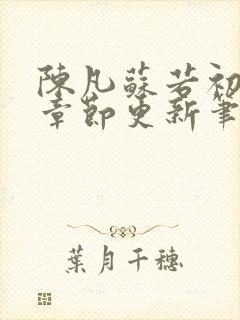 陳凡蘇若初
章節更新筆
葉月千穗